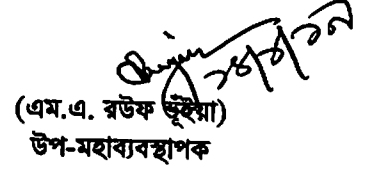 (এম.এ. রউফ ভূঁইয়া)
উপ-মহাব্যবস্থাপক